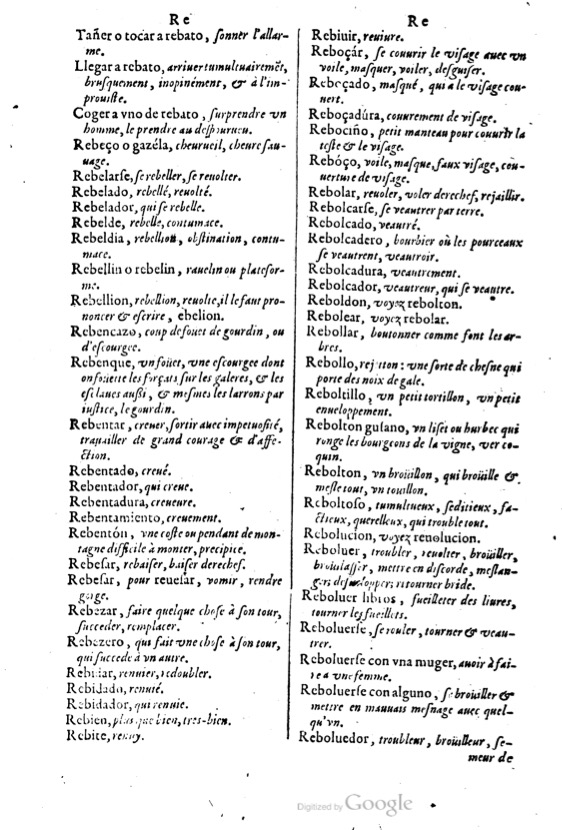 Re
Tañer o tocar a rebato, sonner l'allar-
me.
Llegar a rebato, arriuer tumultuairemẽt,
brusquement, inopinément, & à l'im-
prouiste.
Coger a vno de rebato, surprendre vn
homme, le prendre au despourueu.
Rebeço o gazéla, cheureuil, cheure sau-
uage.
Rebelarse, se rebeller, se reuolter.
Rebelado, rebellé, reuolté.
Rebelador, qui se rebelle.
Rebelde, rebelle, contumace.
Rebeldia, rebellion, obstination, contu-
mace.
Rebellin o rebelin, rauelin ou platefor-
me.
Rebellion, rebellion, reuolte, il le faut pro-
noncer & escrire, ebelion.
Rebencazo, coup de fouet de gourdin, ou
d'escourgee.
Rebenque, vn fouet, vne escourgee dont
on fouette les forçats sur les galeres, & les
esclaues aussi, & mesmes les larrons par
iustice, le gourdin.
Rebentar, creuer, sortir auec impetuosité,
trauailler de grand courage & d'affe-
ction.
Rebentado, creué.
Rebentador, qui creue.
Rebentadura, creueure.
Rebentamiento, creuement.
Rebentón, vne coste ou pendant de mon-
tagne difficile à monter, precipice.
Rebesar, rebaiser, baiser derechef.
Rebesar, pour reuesar, vomir, rendre
gorge.
Rebezar, faire quelque chose à son tour,
succeder, remplacer.
Rebezero, qui fait vne chose à son tour,
qui succede à vn autre.
renuier, redoubler.
Rebidado, renuié.
Rebidador, qui renuie.
Rebien, plus que bien, tres-bien.
Rebite, renuy.
Re
Rebiuir, reuiure.
Reboçár, se couurir le visage auec vn
voile, masquer, voiler, desguiser.
Rebeçado, masqué, qui a le visage cou-
uert.
Reboçadúra, couurement de visage.
Rebociño, petit manteau pour couurir la
teste & le visage.
Rebóço, voile, masque, faux visage, cou-
uerture de visage.
Rebolar, reuoler, voler derechef, rejaillir.
Rebolcarse, se veautrer par terre.
Rebolcado, veautré.
Rebolcadero, bourbier où les pourceaux
se veautrent, veautroir.
Rebolcadura, veautrement.
Rebolcador, veautreur, qui se veautre.
Reboldon, voyez rebolton.
Rebolear, voyez rebolar.
Rebollar, boutonner comme font les ar-
bres.
Rebollo, rejetton: vne sorte de chesne qui
porte des noix de gale.
Reboltillo, vn petit tortillon, vn petit
enueloppement.
Rebolton gusano, vn liset ou hurbec qui
ronge les bourgeons de la vigne, ver co-
quin.
Rebolton, vn broüillon, qui broüille &
mesle tout, vn touillon.
Reboltoso, tumultueux, seditieux, fa-
ctieux, querelleux, qui trouble tout.
Rebolucion, voyez reuolucion.
Reboluer, troubler, reuolter, broüiller,
broüilasser, mettre en discorde, meslan-
ger, retourner bride.
Reboluer libros, fueilleter des liures,
tourner les fueillets.
Reboluerse, se touler, tourner & veau-
trer.
Reboluerse con vna muger, auoir à fai-
re a vne femme.
Reboluerse con alguno, se broüiller &
mettre en mauuais mesnage auec quel-
qu'vn.
Reboluedor, troubleur, broüilleur, se-
meur de
Digitized by Google